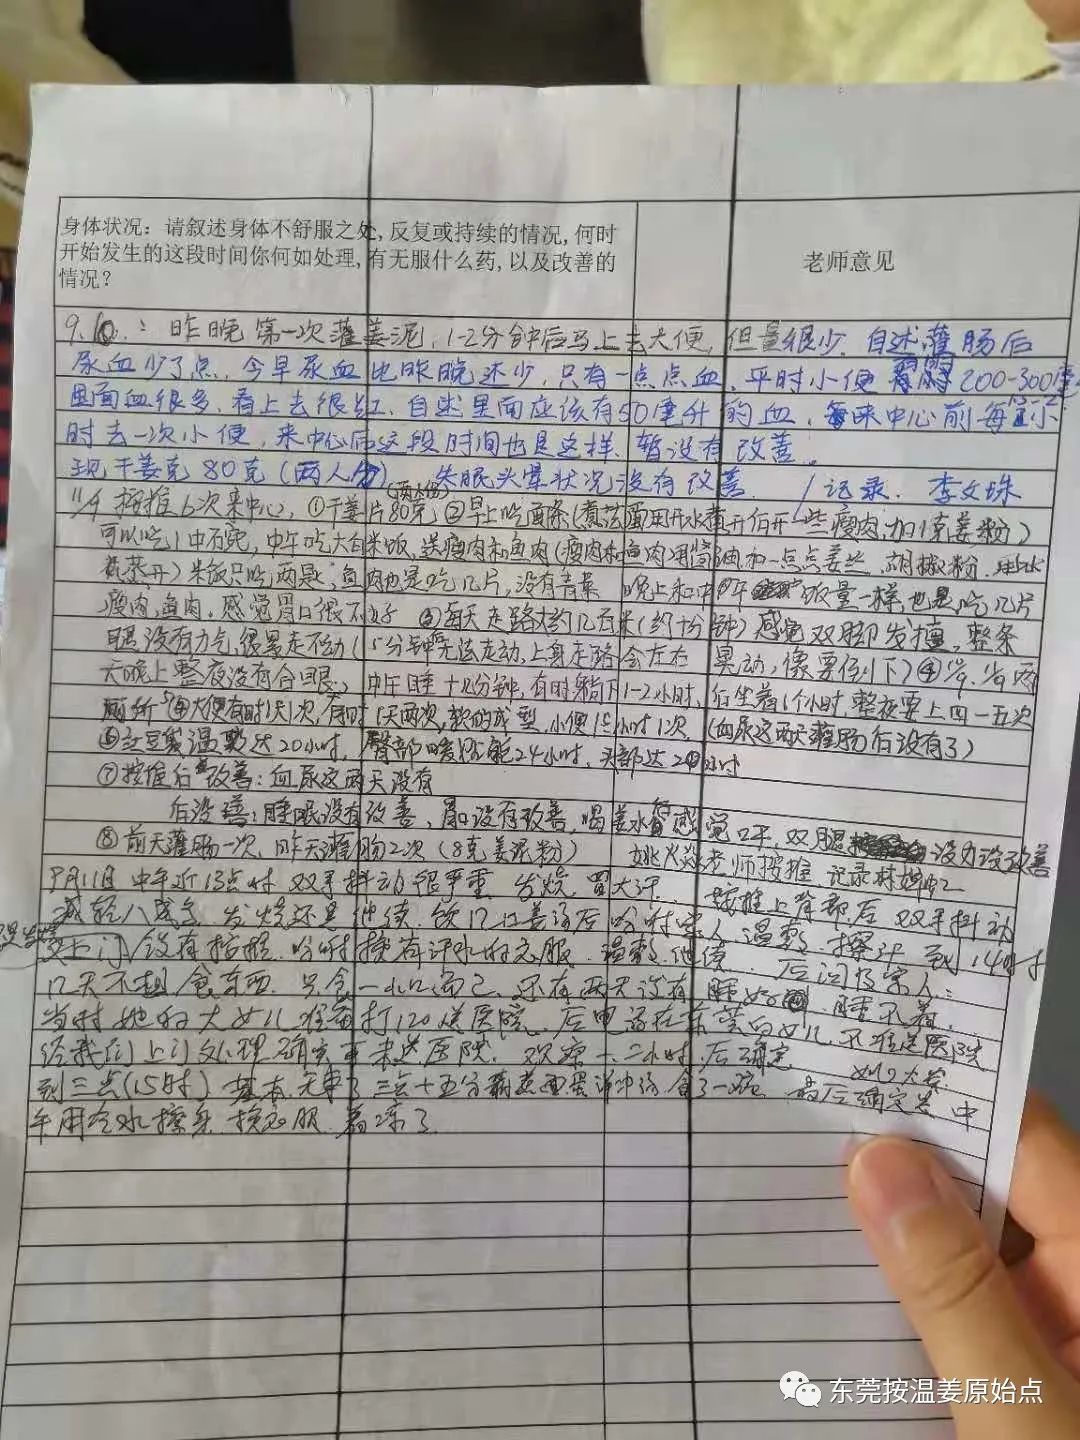 身体状况：请叙述身体不舒服之处,反复或持续的情况,何时
开始发生的这段时间你何如处理,有无服什么药,以及改善的
情况？
老师意见
9.10.：昨晚第一次灌姜泥,1-2分钟后马上去大便,但量很少.自述灌肠后
尿血少了点,今早尿血比昨晚还少,只有一点点血、平时小便 200-300毫
里面血很多,看上去很红、自述里面应该有50毫升的血,来中心前每小
时去一次小便,来中心后这段时间也是这样、暂没有改善.
现干姜克80克(两人份) 失眠头晕状况没有改善. 记录.李文珠
11/9 按推6次来中心,①干姜片80克(两人份)②早上吃面条(煮法面用开水煮开 一些瘦肉,加1克姜粉)
可以吃1中石碗,中午吃大白米饭,送瘦肉和鱼肉(瘦肉和鱼肉用酱油和一点点姜丝,胡椒粉,
煮开)米饭只吃两 ,鱼肉也是吃几片,没有青菜 晚上和中午 饭量一样,也是吃几片
瘦肉,鱼肉.感觉胃口很不好 ③每天走路大约几百米(约十分钟)感觉双脚发 ,整条
腿没有力气,很累走不动(5分钟无法走动,上身走路会左右晃动,像要倒下)④ 两
天晚上整夜没有合眼、中午睡十几分钟,有时躺下1-2小时,后坐着1个小时,整夜要上四一五次
厕所⑤大便有时1天1次,有时1天两次,软的成型,小便 小时1次、(血尿这两天灌肠后没有了)
⑥红豆袋温敷达20小时,臀部暖 能24小时、头部达 小时
⑦按推后改善:血尿这两天没有
后没善:睡眠没有改善、胃口没有改善,喝姜水 感觉 双腿 没力没改善
⑧前天灌肠一次、昨天灌肠2次(8克姜泥粉) 姚火焱老师按推、记录
9月11日中午近13点时双手抖动很严重、发烧,冒大汗. 按推上背部后双手抖动
减轻八成多,发烧还是继续.饮几口姜汤后吩咐家人温敷,擦汗,到14时
上门 没有按推.吩咐换有汗水的衣服.温敷.继续. 后询问家人:
几天不想食东西.只食一小口而已.还有两天没有睡好 睡不着.
当时她的大女儿准备打120送医院、后电话在东莞的女儿,不准送医院
经我们上门处理确定再来送医院. 观察一、二小时.后确定
到三点(15时)基本无事了三点十五分 鸡蛋 食了一碗. 最后确定是中
午用冷水擦身.换衣服.着凉了.
东莞按温姜原始点